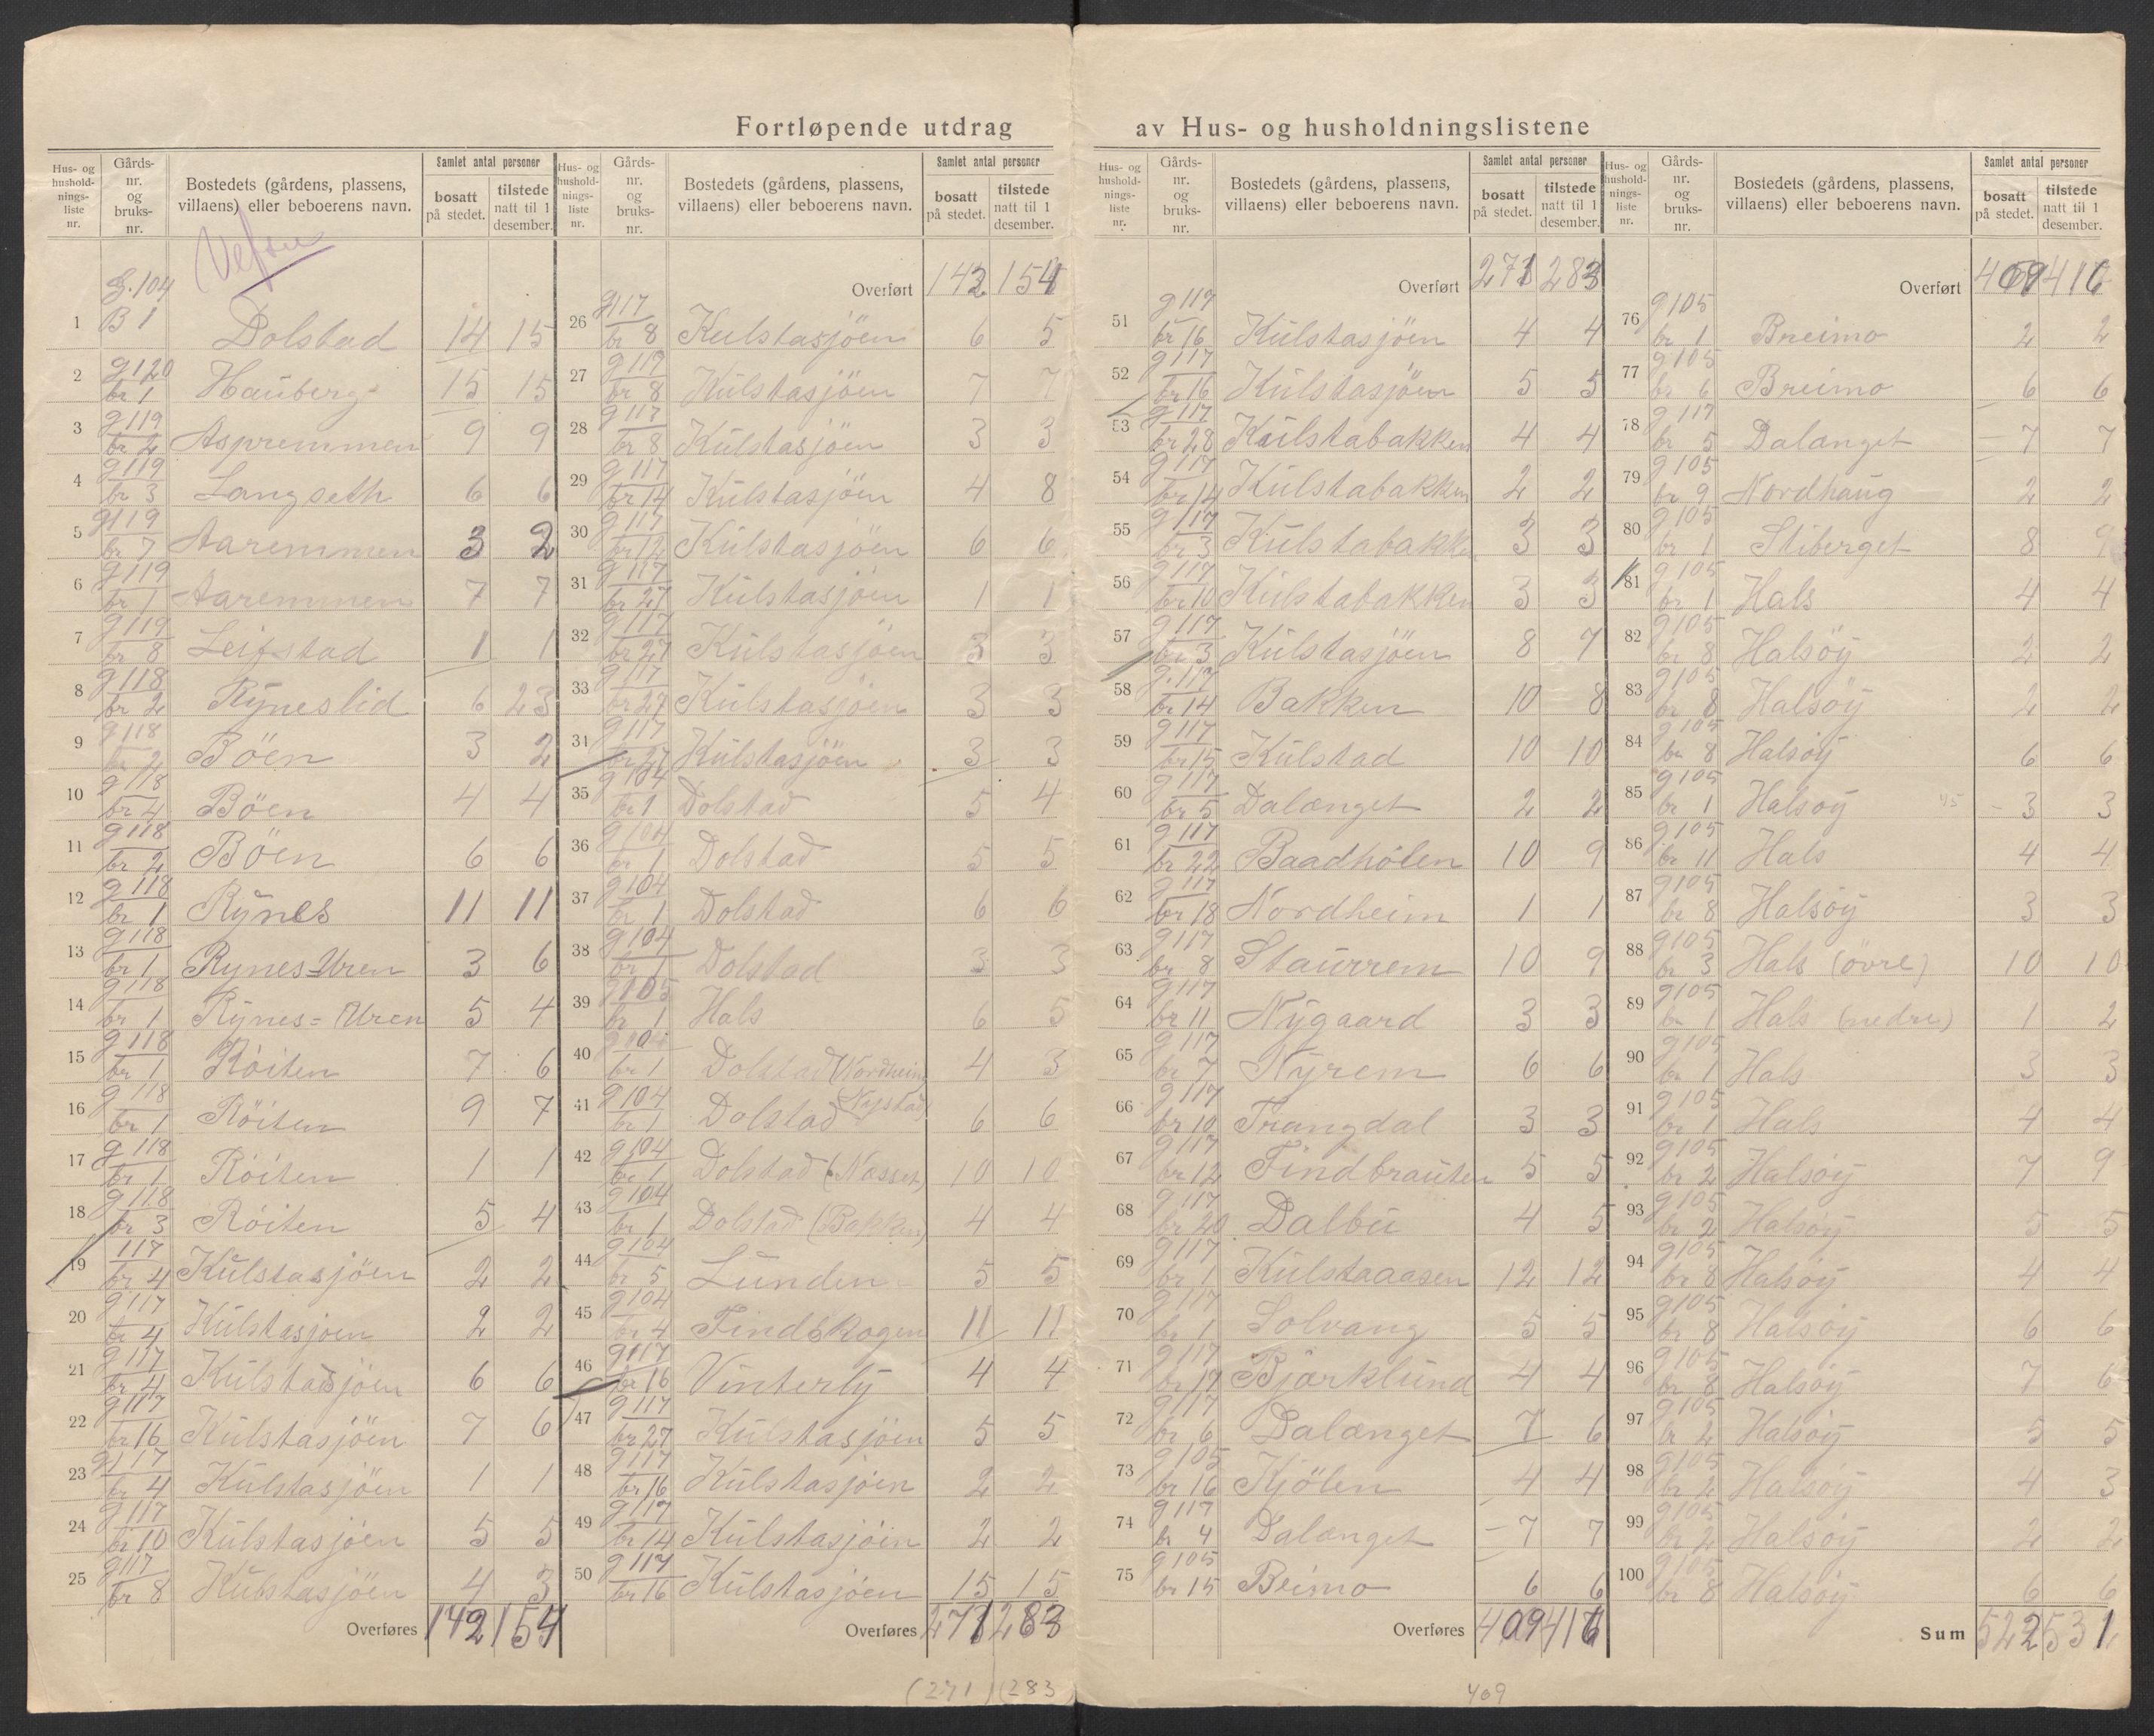 Fortløpende utdrag av Hus- og husholdningslistene
Hus- og hushold-nings-liste nr. Gårds-nr. og bruks-nr. Bostedets (gårdens, plassens, villaens) eller beboerens navn. Samlet antal personer bosatt på stedet. tilstede natt til 1 desember.
1 g. 104 B 1 Dolstad 14 15
2 g 120 br 1 Hauberg 15 15
3 g 119 br 2 Aspremmen 9 9
4 g 119 br 3 Langseth 6 6
5 g 119 br 7 Aaremmen 3 2
6 g 119 br 1 Aaremmen 7 7
7 g 119 br 8 Leifstad 1 1
8 g 118 br 2 Ryneslid 6 23
9 g 118 br 2 Böen 3 2
10 g 118 br 4 Böen 4 4
11 g 118 br 2 Böen 6 6
12 g 118 br 1 Rynes 11 11
13 g 118 br 1 Rynes-Uren 3 6
14 g 118 br 1 Rynes=Uren 5 4
15 g 118 br 1 Röiten 7 6
16 g 118 br 1 Röiten 9 7
17 g 118 br 1 Röiten 1 1
18 g 118 br 3 Röiten 5 4
19 117 br 4 Kulstasjöen 2 2
20 g 117 br 4 Kulstasjöen 2 2
21 g 117 br 4 Kulstadsjöen 6 6
22 g 117 br 16 Kulstasjöen 7 6
23 g 117 br 4 Kulstasjöen 1 1
24 g 117 br 10 Kulstasjöen 5 5
25 g 117 br 8 Kulstasjöen 4 3
Overføres 142 154
Hus- og hushold-nings-liste nr. Gårds-nr. og bruks-nr. Bostedets (gårdens, plassens, villaens) eller beboerens navn. Samlet antal personer bosatt på stedet. tilstede natt til 1 desember.
Overført 142 154
26 g 117 br 8 Kulstasjöen 6 5
27 g 117 br 8 Kulstasjöen 7 7
28 g 117 br 8 Kulstasjöen 3 3
29 g 117 br 14 Kulstasjöen 4 8
30 g 117 br 12 Kulstasjöen 6 6
31 g 117 br 27 Kulstasjöen 1 1
32 g 117 br 27 Kulstasjöen 3 3
33 g 117 br 27 Kulstasjöen 3 3
31 g 117 br 27 Kulstasjöen 3 3
35 g 104 br 1 Dolstad 5 4
36 g 104 br 1 Dolstad 5 5
37 g 104 br 1 Dolstad 6 6
38 g 104 br 1 Dolstad 3 3
39 g 105 br 1 Hals 6 5
40 g 104 br 1 Dolstad (Nordheim) 4 3
41 g 104 br 1 Dolstad (Nystad) 6 6
42 g 104 br 1 Dolstad (Nesset) 10 10
43 g 104 br 1 Dolstad (Bakken) 4 4
44 g 104 br 5 Lunden 5 5
45 g 104 br 4 Findskogen 11 11
46 g 117 br 16 Vinterly 4 4
47 g 117 br 27 Kulstasjöen 5 5
48 g 117 br 16 Kulstasjöen 2 2
49 g 117 br 14 Kulstasjöen 2 2
50 g 117 br 16 Kulstasjöen 15 15
Overføres 271 283
(271) (283
Hus- og hushold-nings-liste nr. Gårds-nr. og bruks-nr. Bostedets (gårdens, plassens, villaens) eller beboerens navn. Samlet antal personer bosatt på stedet. tilstede natt til 1 desember.
Overført 271 283
51 g 117 br 16 Kulstasjöen 4 4
52 g 117 br 16 Kulstasjöen 5 5
53 g 117 br 28 Kulstabakken 4 4
54 g 117 br 14 Kulstabakken 2 2
55 g 117 br 3 Kulstabakken 3 3
56 g 117 br 10 Kulstabakken 3 3
57 g 117 br 3 Kulstasjöen 8 7
58 g. 117 br 14 Bakken 10 8
59 g 117 br 15 Kulstad 10 10
60 g 117 br 5 Dalænget 2 2
61 g 117 br 22 Baadhölen 10 9
62 g 117 br 18 Nordheim 1 1
63 g 117 br 8 Staurrem 10 9
64 g 117 br 11 Nygaard 3 3
65 g 117 br 7 Nyrem 6 6
66 g 117 br 10 Trangdal 3 3
67 g 117 br 12 Findbrauten 5 5
68 g 117 br 20 Dalbu 4 5
69 g 117 br 1 Kulstaaasen 12 12
70 g 117 br 1 Solvang 5 5
71 g 117 br 17 Bjørklund 4 4
72 g 117 br 6 Dalænget 7 6
73 g 105 br 16 Kjölen 4 4
74 g 117 br 4 Dalænget 7 7
75 g 105 br 15 Beimo 6 6
Overføres 409 416
409
Hus- og hushold-nings-liste nr. Gårds-nr. og bruks-nr. Bostedets (gårdens, plassens, villaens) eller beboerens navn. Samlet antal personer bosatt på stedet. tilstede natt til 1 desember.
Overført 409 416
76 g 105 br 1 Breimo 2 2
77 g 105 br 6 Breimo 6 6
78 g 117 br 5 Dalænget 7 7
79 g 105 br 9 Nordhaug 2 2
80 g 105 br 1 Stiberget 8 9
81 g 105 br 1 Hals 4 4
82 g 105 br 8 Halsöy 2 2
83 g 105 br 8 Halsöy 2 2
84 g 105 br 8 Halsöy 6 6
85 g 105 br 1 Halsöy 3 3
86 g 105 br 11 Hals 4 4
87 g 105 br 8 Halsöy 3 3
88 g 105 br 3 Hals (övre) 10 10
89 g 105 br 1 Hals (nedre) 1 2
90 g 105 br 1 Hals 3 3
91 g 105 br 1 Hals 4 4
92 g 105 br 2 Halsöy 7 9
93 g 105 br 2 Halsöy 5 5
94 g 105 br 8 Halsöy 4 4
95 g 105 br 8 Halsöy 6 6
96 g 105 br 8 Halsöy 7 6
97 g 105 br 2 Halsöy 5 5
98 g 105 br 2 Halsöy 4 3
99 g 105 br 2 Halsöy 2 2
100 g 105 br 8 Halsöy 6 6
Sum 522 531